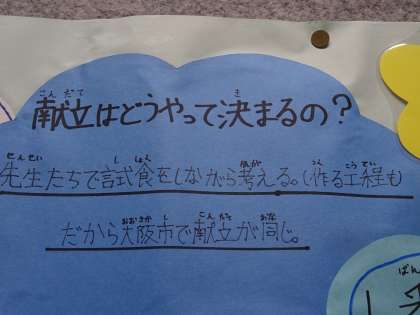 献立はどうやって決まるの?
先生たちで試食をしながら考える。(作る工程も
だから大阪市で献立が同じ。